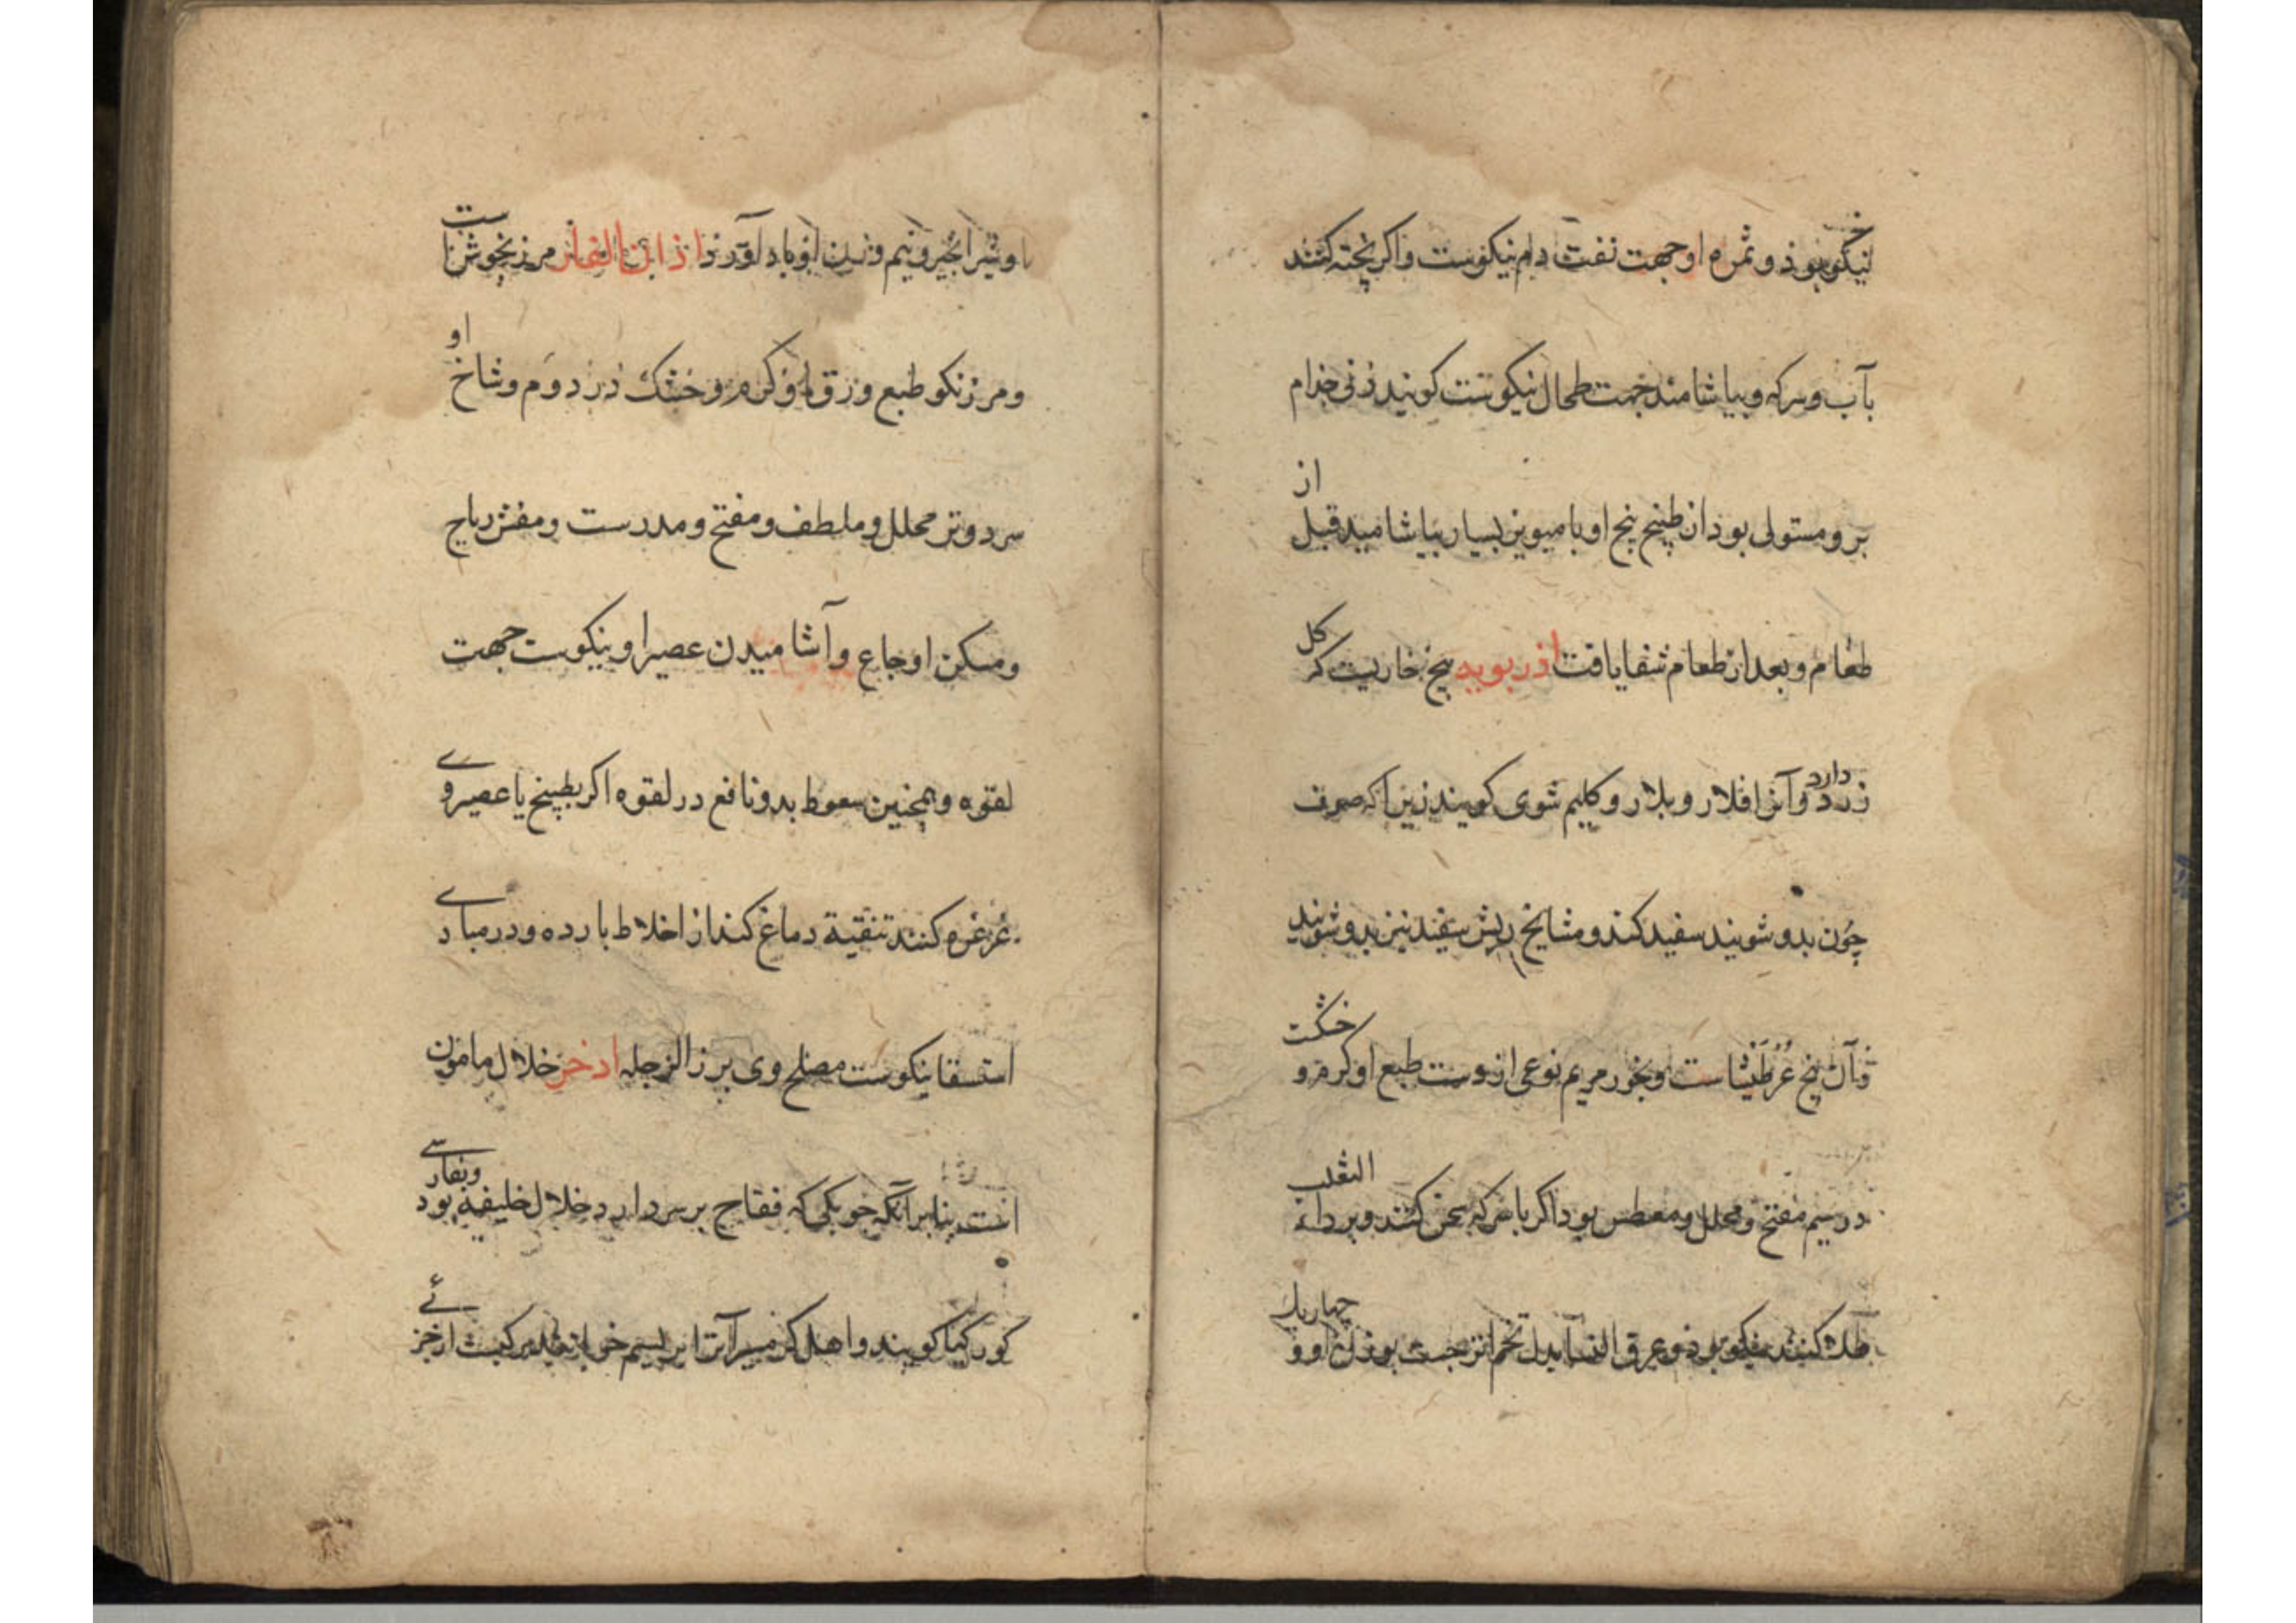 نیکو بوذ و ثمره او جهت نفث دم نیکوست و اکر پخته کنند
بآب و سرکه و بیاشامند جهت طحال نیکوست کویند زنی جذام
برو مستولی بود از طبیخ بیخ او با میویز بسیار بیاشامید قبل از
طعام و بعد از طعام شفا یافت اذربویه بیخ خاریست که کل
زرد دارد و آنرا فلار و بلار و کلیم شوی کویند زیرا که صوف
چون بدو شویند سفید کند و مشایخ ریش سفید نیز بدو شویند
و آن بیخ عرطنیثا است و بخور مریم نوعی ازوست طبع او کرم و خشکست
در سیم مفتح و محلل و معطس بود اکر با سرکه سحق کنند و بر داء الثعلب
طلا کنند نیکو بود و عرق النسا بدل تخم انزجست بوزن او و چهار یک
او شیر انجیر و نیم وزن او باد آورد اذان الفار مرزنجوش است
و مرزنکو طبع ورق او کرم و خشک در دوم و شاخ او
سرد و تر محلل و ملطف و مفتح و مدرست و مفش ریاح
و مسکن اوجاع و آشامیدن عصیر او نیکوست جهت
لقوه و همچنین سعوط بدو نافع در لقوه اکر بطبیخ یا عصیر وی
غرغره کنند تنقیة دماغ کند از اخلاط بارده و در مبادی
استسقا نیکوست مصلح وی بزر الرجله اذخر خلال مامون
است بنابر آنکه چوبکی که فقاح بر سر دارد خلال خلیفه بود و بفارسی
کورکیا کویند و اهل کرمسیر آنرا